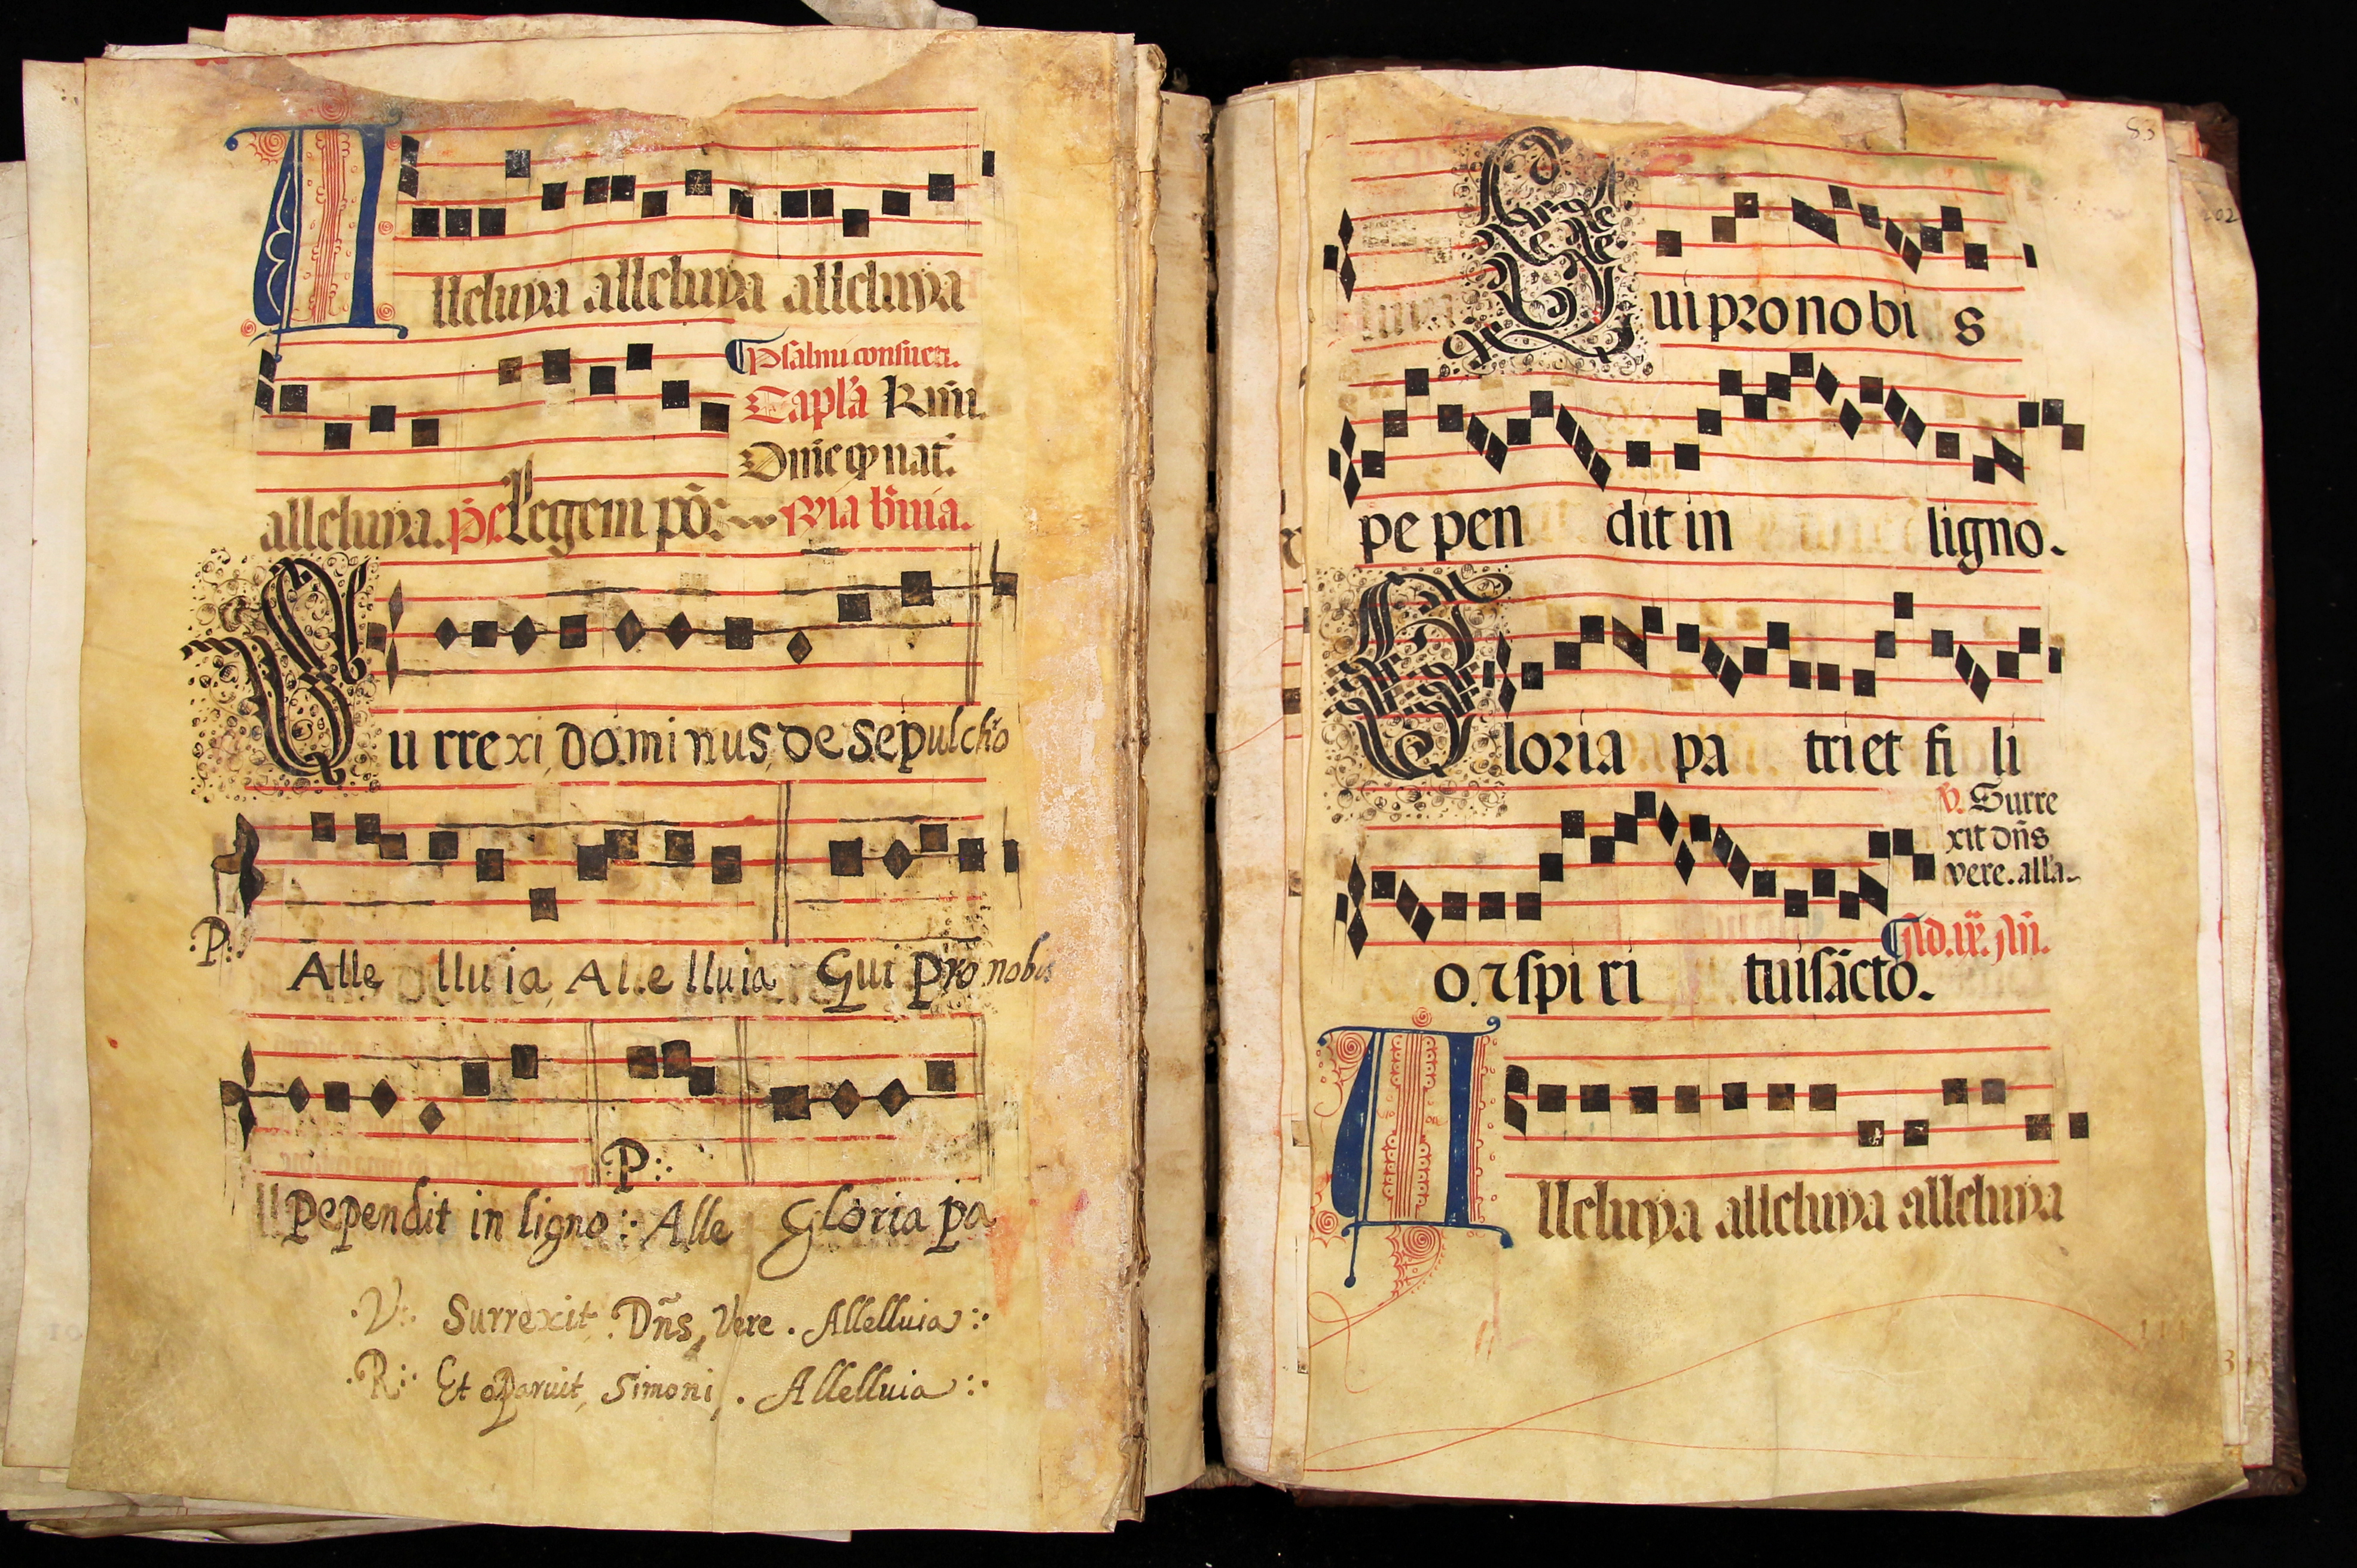 Alleluya alleluya alleluya
Psalmi consuet.
Capl'a Rm̄i.
Om̄e qp nat̄.
alleluya. ps. Legem pō: R̄ia br̄uia.
Surrexi, dominus, de sepulchō
:P:
Alle lluia, Alelluia Qui pro nobis
:P:
Pependit in ligno :· Alle Gloria pa
·V:· Surrexit. Dn̄s, Vere. Allelluia :·
·R:· Et aparuit, Simoni, . Allelluia :·
83
202
Qui pro no bi s
pe pen dit in ligno.
Gloria pa tri et fi li
V. Surre
xit dn̄s
vere. all'a.
o. ⁊ spi ri tui sācto.
Ad. ix. An̄.
Alleluya alleluya alleluya